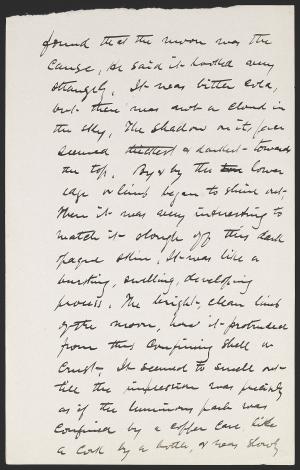 found that the moon was the
cause, he said it looked very
strangely. It was bitter cold,
but there was not a cloud in
the sky. The shadow on its face
seemed thickest or darkest towards
the top. By & by the lower
edge or limb began to shine out,
Then it was very interesting to
watch it slough off this dark
opaque skin. It was like a
bursting, swelling, developing
process. The bright, clean limb
of the moon, how it protruded
from this confining shell or
crust. It seemed to swell out
till the impression was precisely
as if the luminous part was
confined by a copper case, like
a cork by a bottle, & was slowly